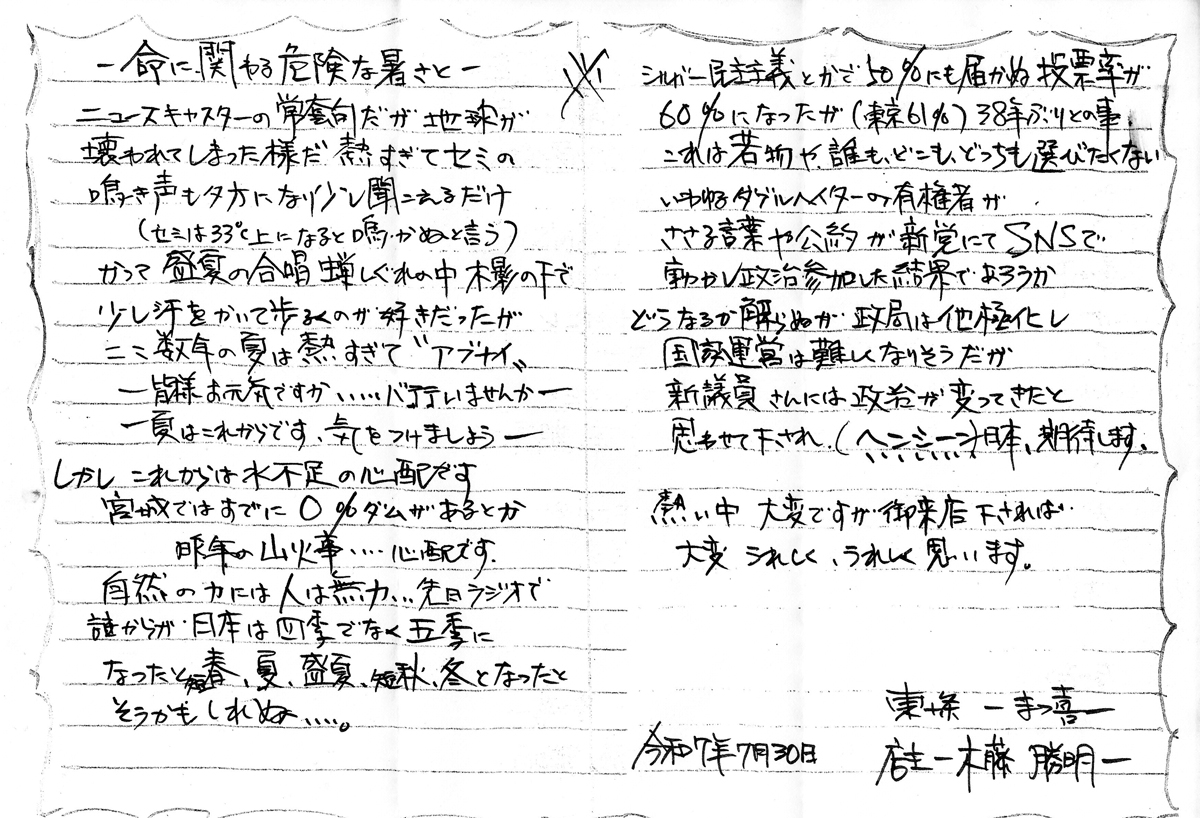 ー命に関わる危険な暑さとー
ニュースキャスターの常套句だが地球が
壊われてしまった様だ 熱すぎてセミの
鳴き声も夕方になり少し聞こえるだけ
(セミは33℃上になると鳴かぬと言う)
かつて盛夏の合唱 蝉しぐれの中 木影の下で
少し汗をかいて歩るくのが好きだったが
ここ数年の夏は熱すぎて〝アブナイ〟
ー皆様お元気ですか……バテていませんかー
ー夏はこれからです、気をつけましょうー
しかし これからは水不足の心配です
宮城ではすでに0%ダムがあるとか
昨年の山火事‥‥心配です.
自然の力には人は無力...先日ラジオで
誰からが 日本は四季でなく五季に
なったと短春、夏、盛夏、短秋、冬となったと
そうかもしれぬ‥‥。
シルバー民主主義とかで50%にも届かぬ投票率が
60%になったが(東京61%)38年ぶりとの事
これは若物や、誰も、どこも、どっちも選びたくない
いわゆるダブルヘイターの有権者が
ささる言葉や公約が新党にてSNSで
動かし政治参加した結果であろうか
どうなるか解らぬが 政局は他極化し
国家運営は難しくなりそうだが
新議員さんには政治が変ってきたと
思わせて下され.(ヘンシーン)日本、期待します.
熱い中 大変ですが御来店下されば
大変 うれしく、うれしく思います。
東條 一まつ喜一
令和7年7月30日
店主一木藤 勝明一